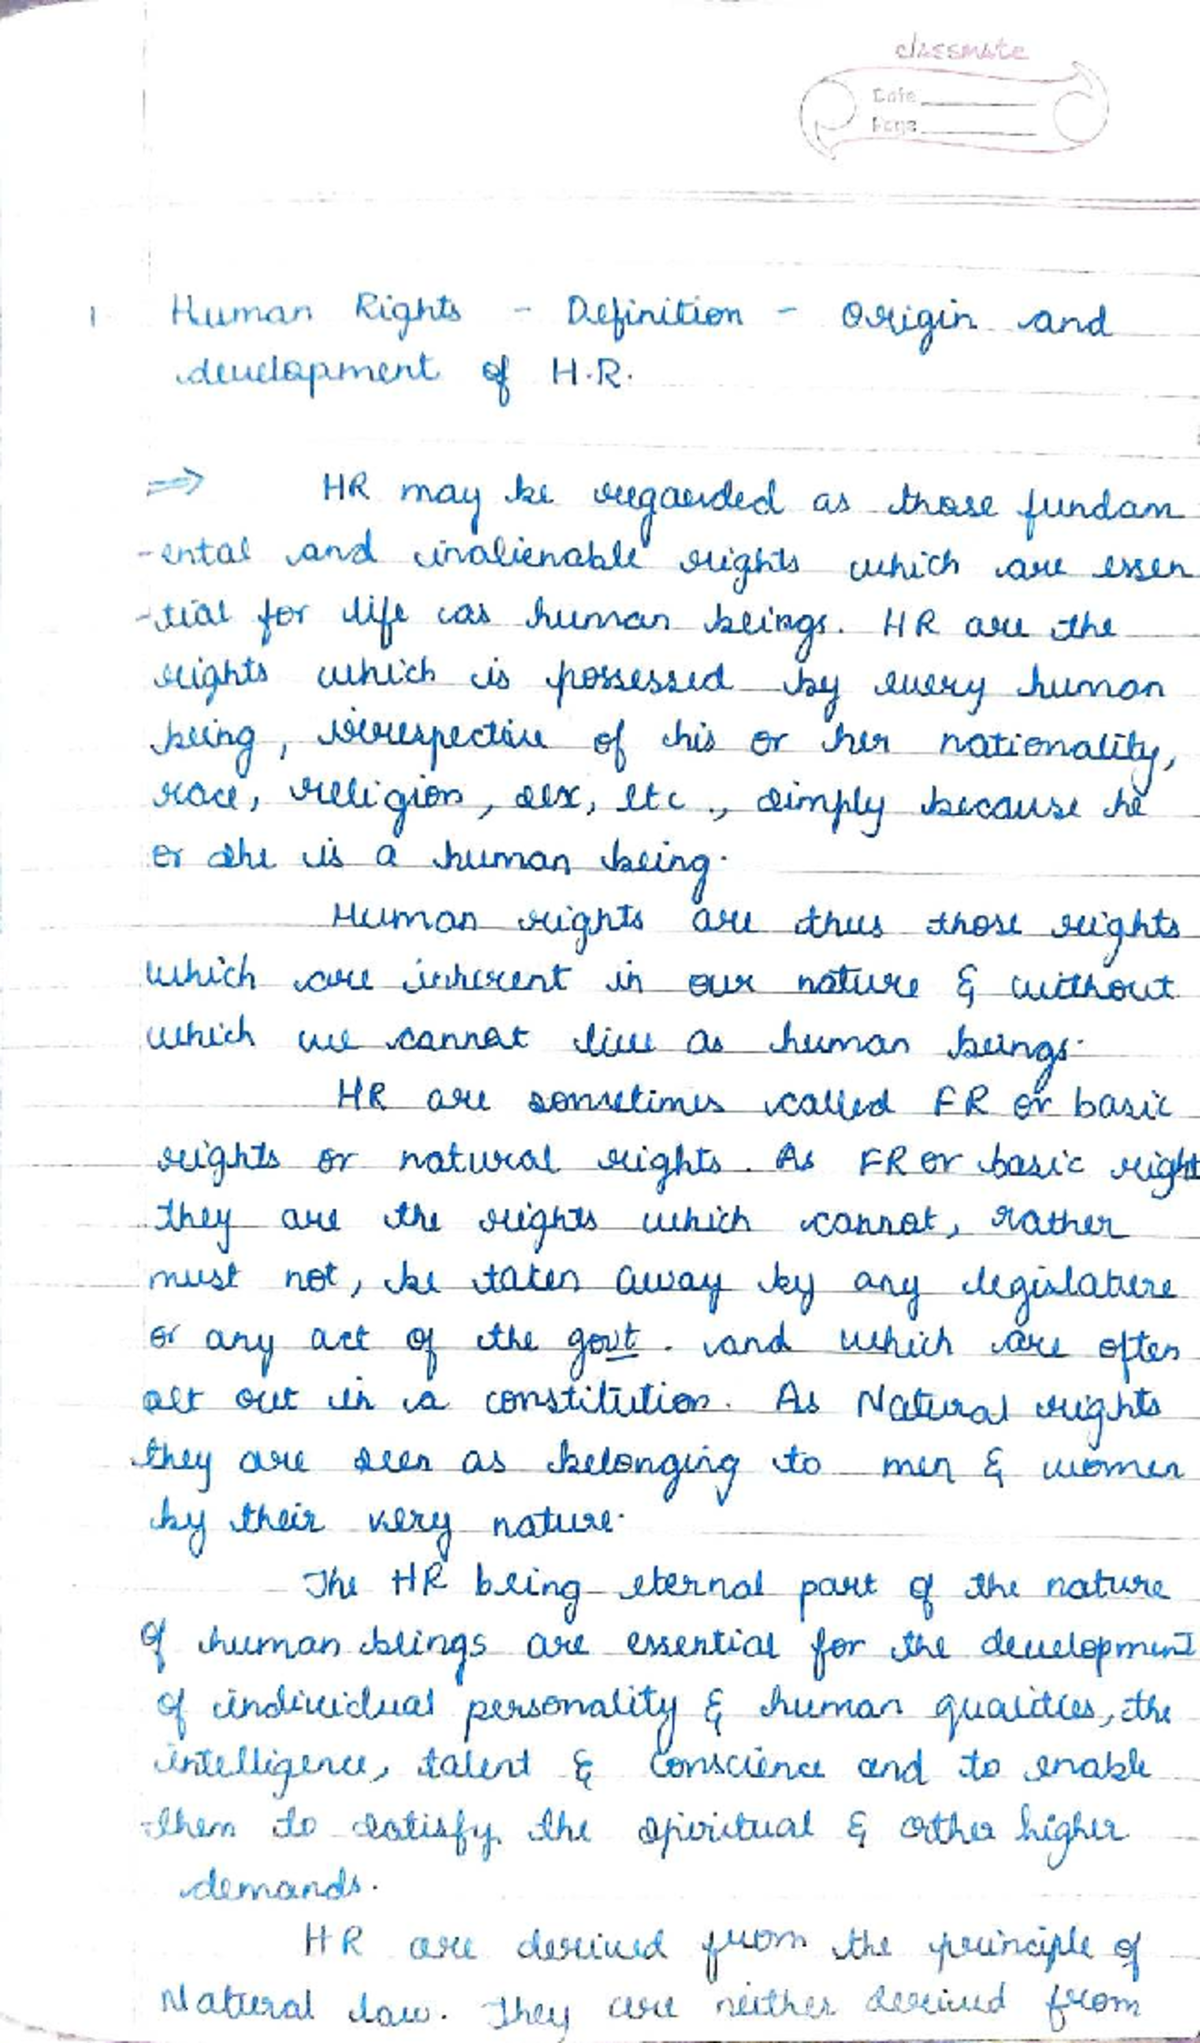 classmate
Date
Page
1 Human Rights - Definition - Origin and
development of H.R.
⇒ HR may be regarded as those fundam
-ental and inalienable rights which are essen
-tial for life as human beings. HR are the
rights which is possessed by every human
being, irrespective of his or her nationality,
race, religion, sex, etc., simply because he
or she is a human being.
Human rights are thus those rights
which are inherent in our nature & without
which we cannot live as human beings.
HR are sometimes called FR or basic
rights or natural rights. As FR or basic right
they are the rights which cannot, rather
must not, be taken away by any legislature
or any act of the govt. and which are often
set out in a constitution. As Natural rights
they are seen as belonging to men & women
by their very nature.
The HR being eternal part of the nature
of human beings are essential for the development
of individual personality & human qualities, the
intelligence, talent & conscience and to enable
them to satisfy the spiritual & other higher
demands.
HR are derived from the principle of
Natural law. They are neither derived from